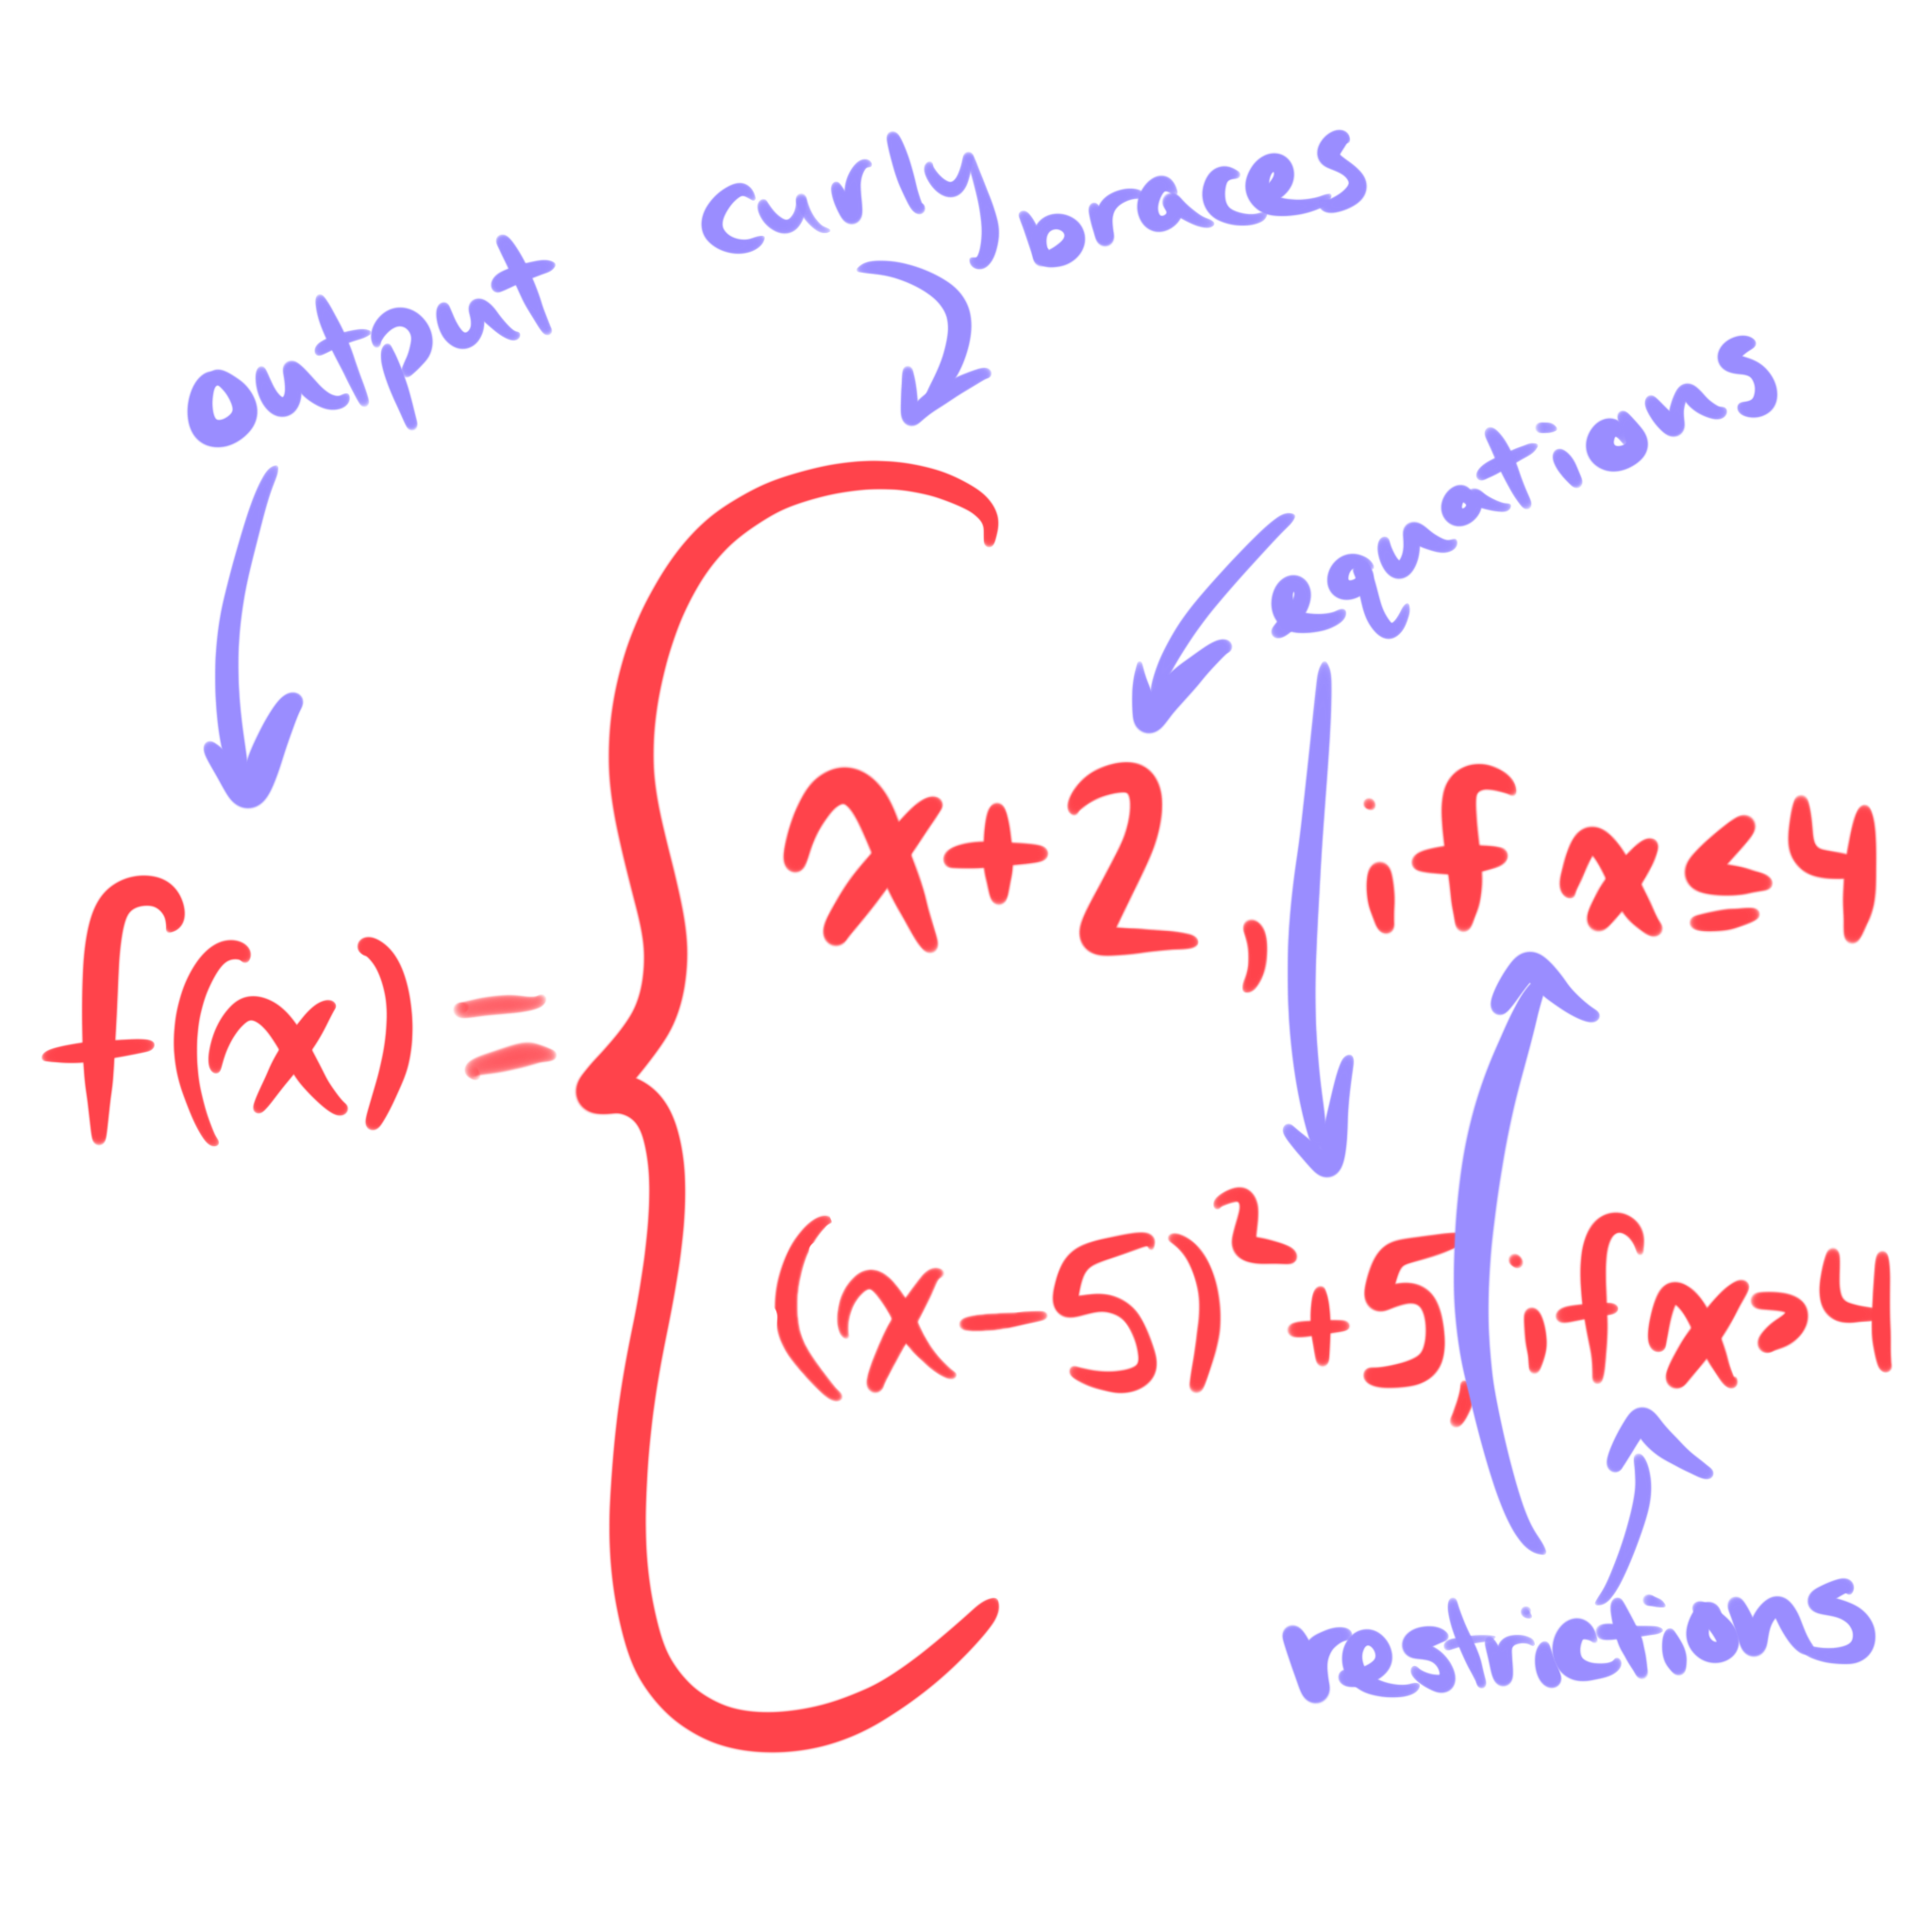 curly braces
output
equations
x+2, if x≤4
f(x) =
(x-5)²+5, if x>4
restrictions